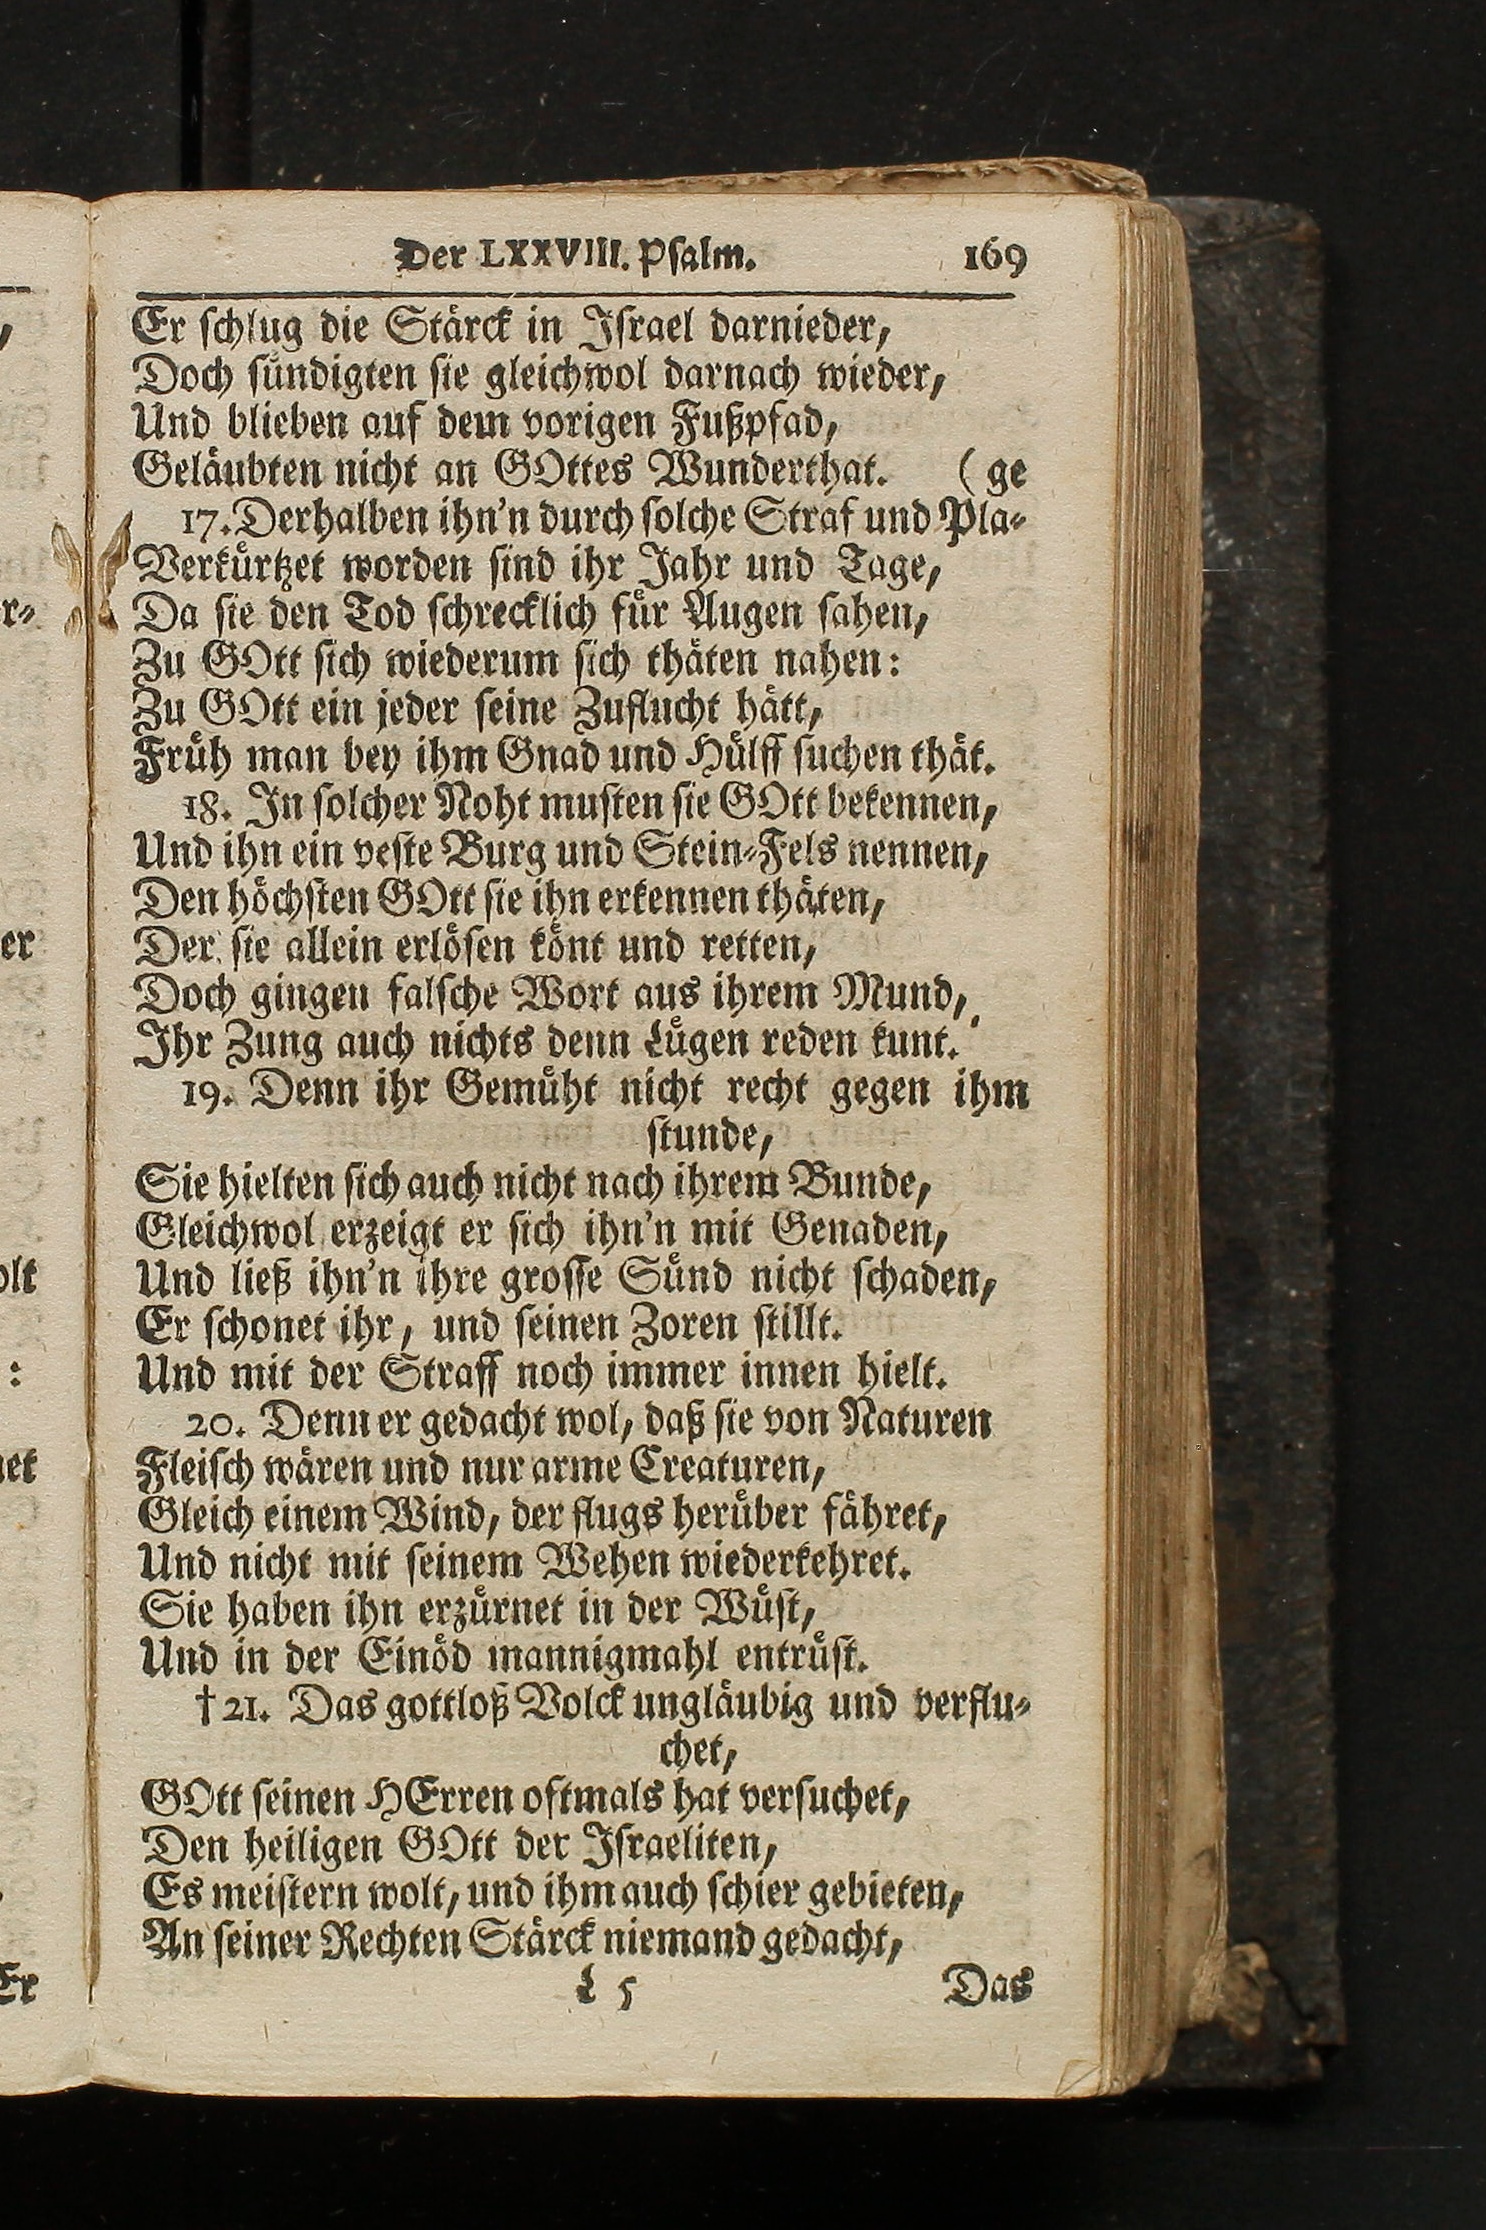 Der LXXVIII. Psalm. 169
Er schlug die Stärck in Israel darnieder,
Doch sündigten sie gleichwol darnach wieder,
Und blieben auf dem vorigen Fußpfad,
Geläubten nicht an GOttes Wunderthat. (ge
17. Derhalben ihn'n durch solche Straf und Pla-
Verkürtzet worden sind ihr Jahr und Tage,
Da sie den Tod schrecklich für Augen sahen,
Zu GOtt sich wiederum sich thäten nahen:
Zu GOtt ein jeder seine Zuflucht hätt,
Früh man bey ihm Gnad und Hülff suchen thät.
18. In solcher Noht musten sie GOtt bekennen,
Und ihn ein veste Burg und Stein-Fels nennen,
Den höchsten GOtt sie ihn erkennen thäten,
Der sie allein erlösen könt und retten,
Doch gingen falsche Wort aus ihrem Mund,
Ihr Zung auch nichts denn Lügen reden kunt.
19. Denn ihr Gemüht nicht recht gegen ihm
stunde,
Sie hielten sich auch nicht nach ihrem Bunde,
Gleichwol erzeigt er sich ihn'n mit Genaden,
Und ließ ihn'n ihre grosse Sünd nicht schaden,
Er schonet ihr, und seinen Zoren stillt.
Und mit der Straff noch immer innen hielt.
20. Denn er gedacht wol, daß sie von Naturen
Fleisch wären und nur arme Creaturen,
Gleich einem Wind, der flugs herüber fähret,
Und nicht mit seinem Wehen wiederkehret.
Sie haben ihn erzürnet in der Wüst,
Und in der Einöd mannigmahl entrüst.
†21. Das gottloß Volck ungläubig und verflu-
chet,
GOtt seinen HErren oftmals hat versuchet,
Den heiligen GOtt der Israeliten,
Es meistern wolt, und ihm auch schier gebieten,
An seiner Rechten Stärck niemand gedacht,
L 5 Das